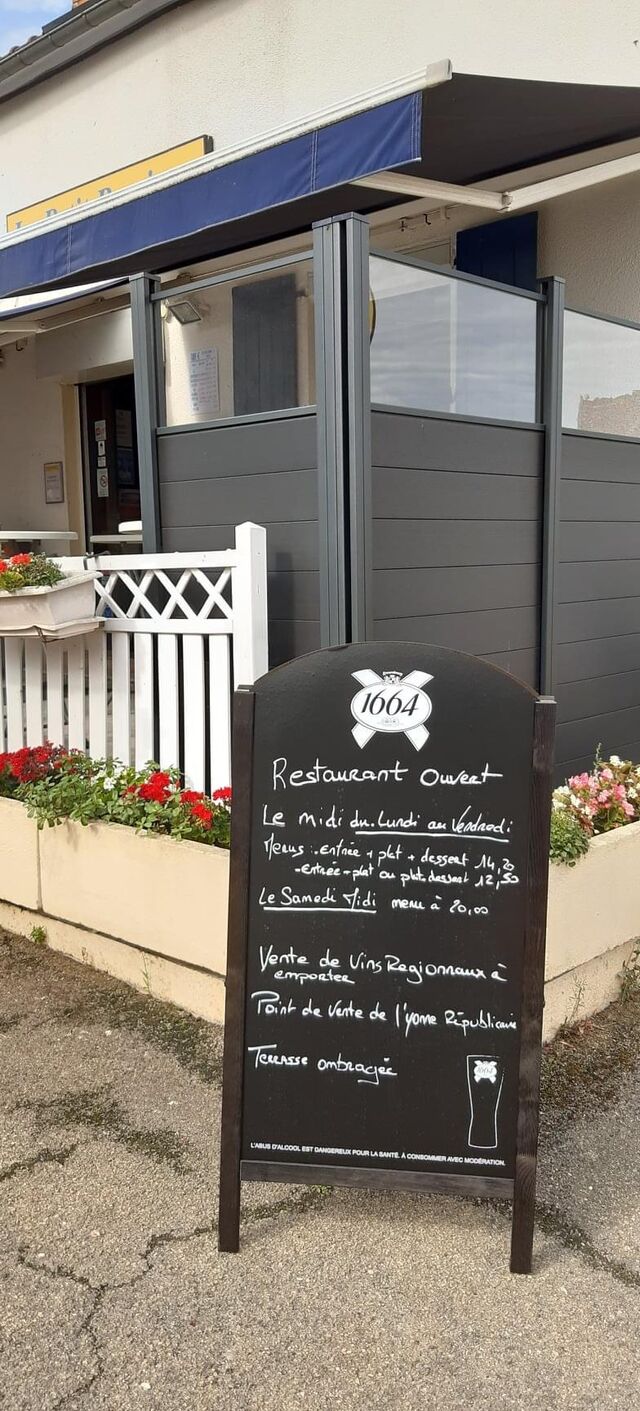 Le Petit
1664
Restaurant Ouvert
Le midi du Lundi au Vendredi
Menus : entrée + plat + dessert 14,20
- entrée + plat ou plat dessert 12,50
Le Samedi Midi menu à 20,00
Vente de Vins Regionnaux à
emporter
Point de Vente de l'yonne Républicaine
Terrasse ombragée
1664
L'ABUS D'ALCOOL EST DANGEREUX POUR LA SANTÉ. À CONSOMMER AVEC MODÉRATION.